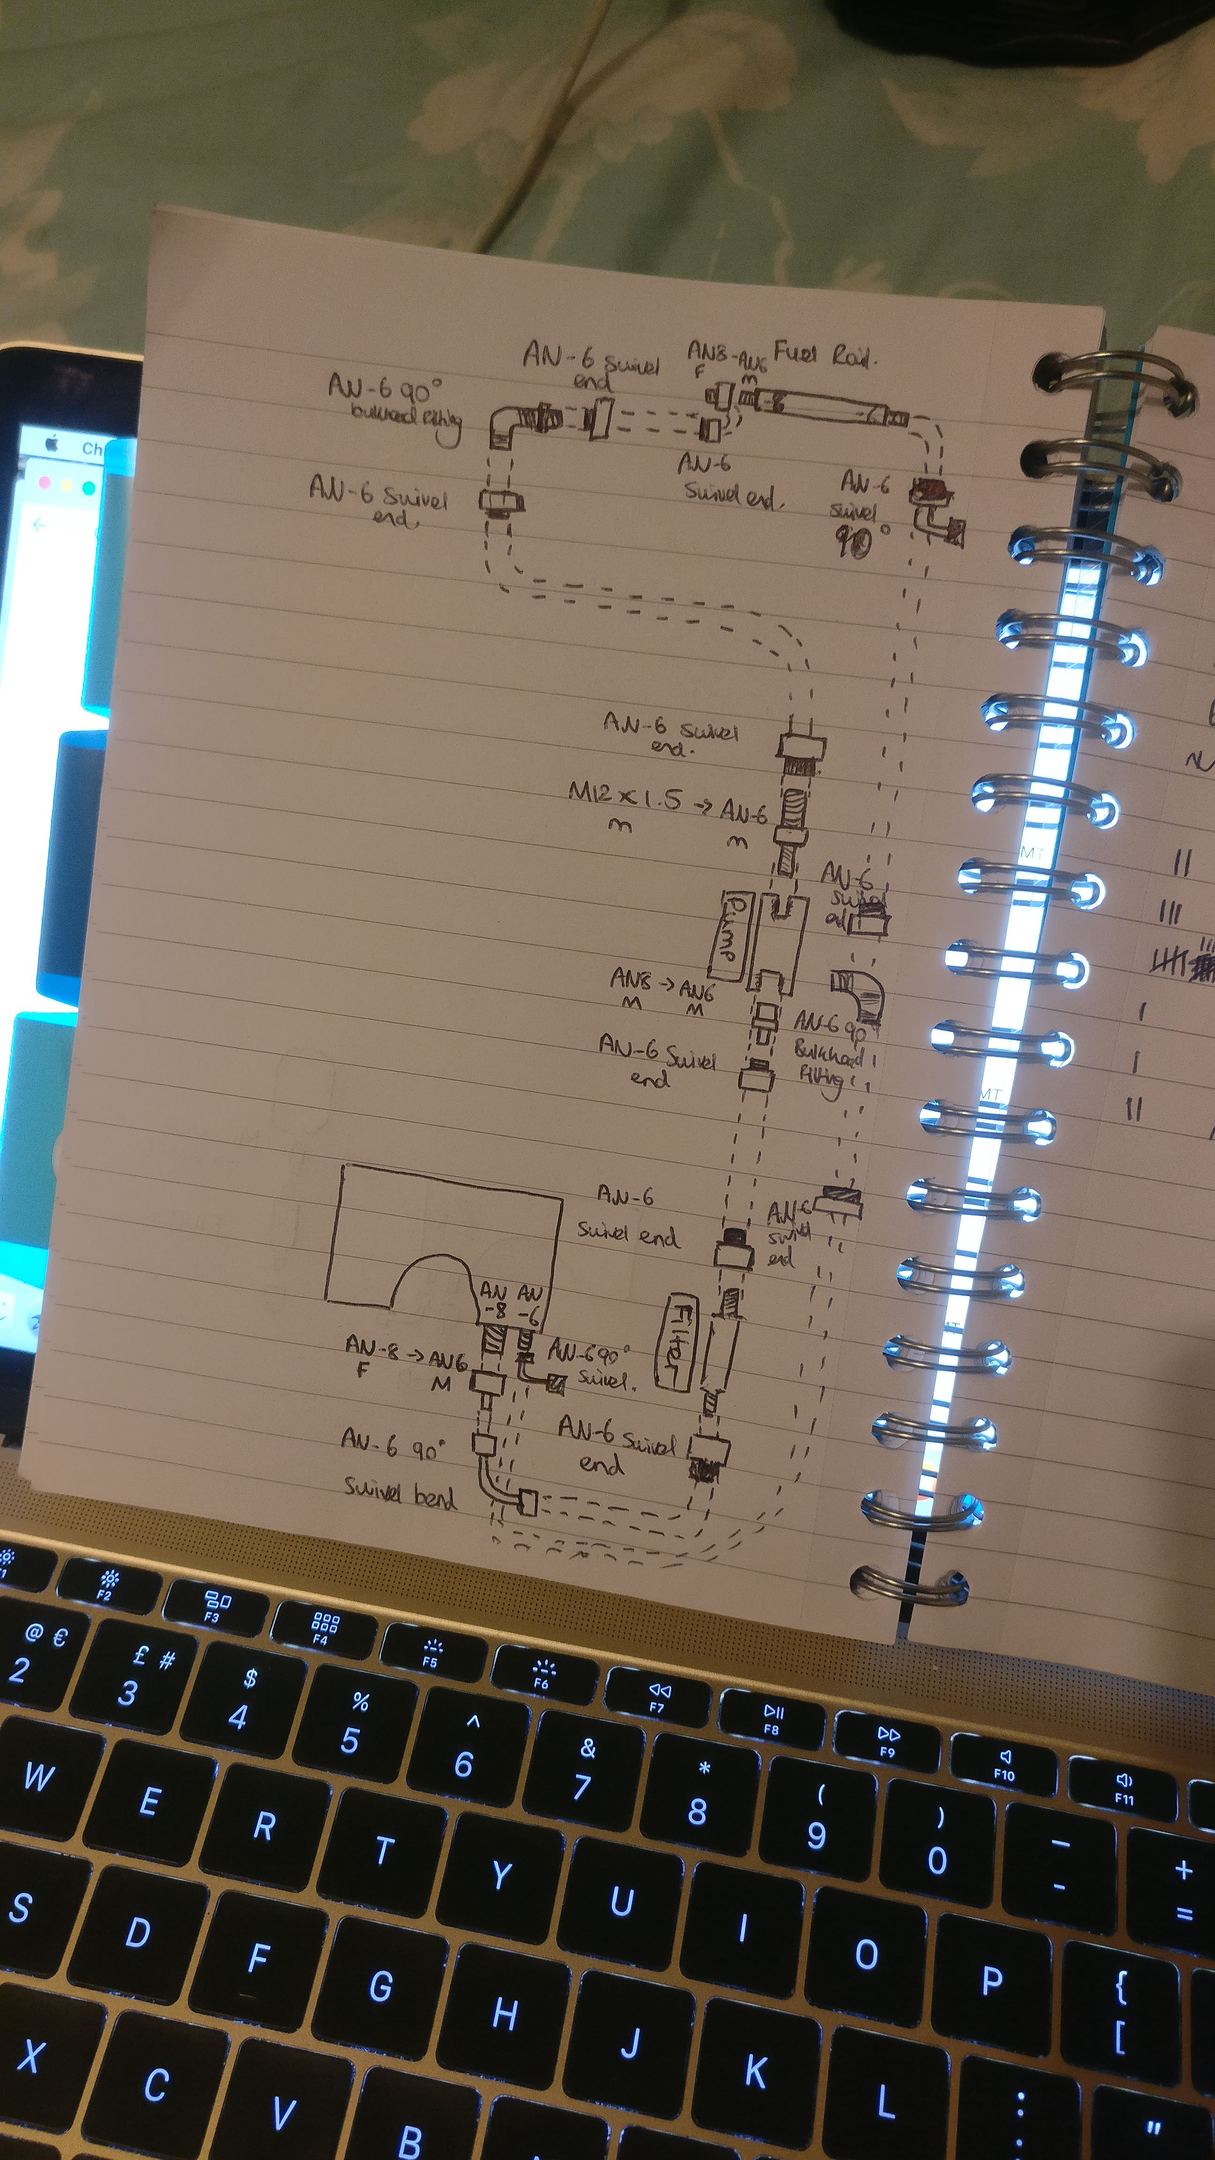 AN8-AN6 Fuel Rail.
F M
AN-6 swivel
end
AN-6 90°
bulkhead fitting
-8 -6
AN-6
swivel end.
AN-6
swivel
90°
AN-6 swivel
end.
AN-6 swivel
end.
M12 x 1.5 → AN-6
m m
AN-6
swivel
end
Pump
AN8 → AN6
M M
AN-6 90°
Bulkhead
fitting
AN-6 swivel
end
AN-6
swivel end
AN-6
swivel
end
AN AN
-8 -6
Filter
AN-8 → AN6
F M
AN-6 90°
swivel.
AN-6 90°
swivel bend
AN-6 swivel
end
MT
MT
Ch
F1 F2 F3 F4 F5 F6 F7 F8 F9 F10 F11
@ € 2 £ # 3 $ 4 % 5 ^ 6 & 7 * 8 ( 9 ) 0 _ - + =
W E R T Y U I O P { [
S D F G H J K L : ; "
X C V B